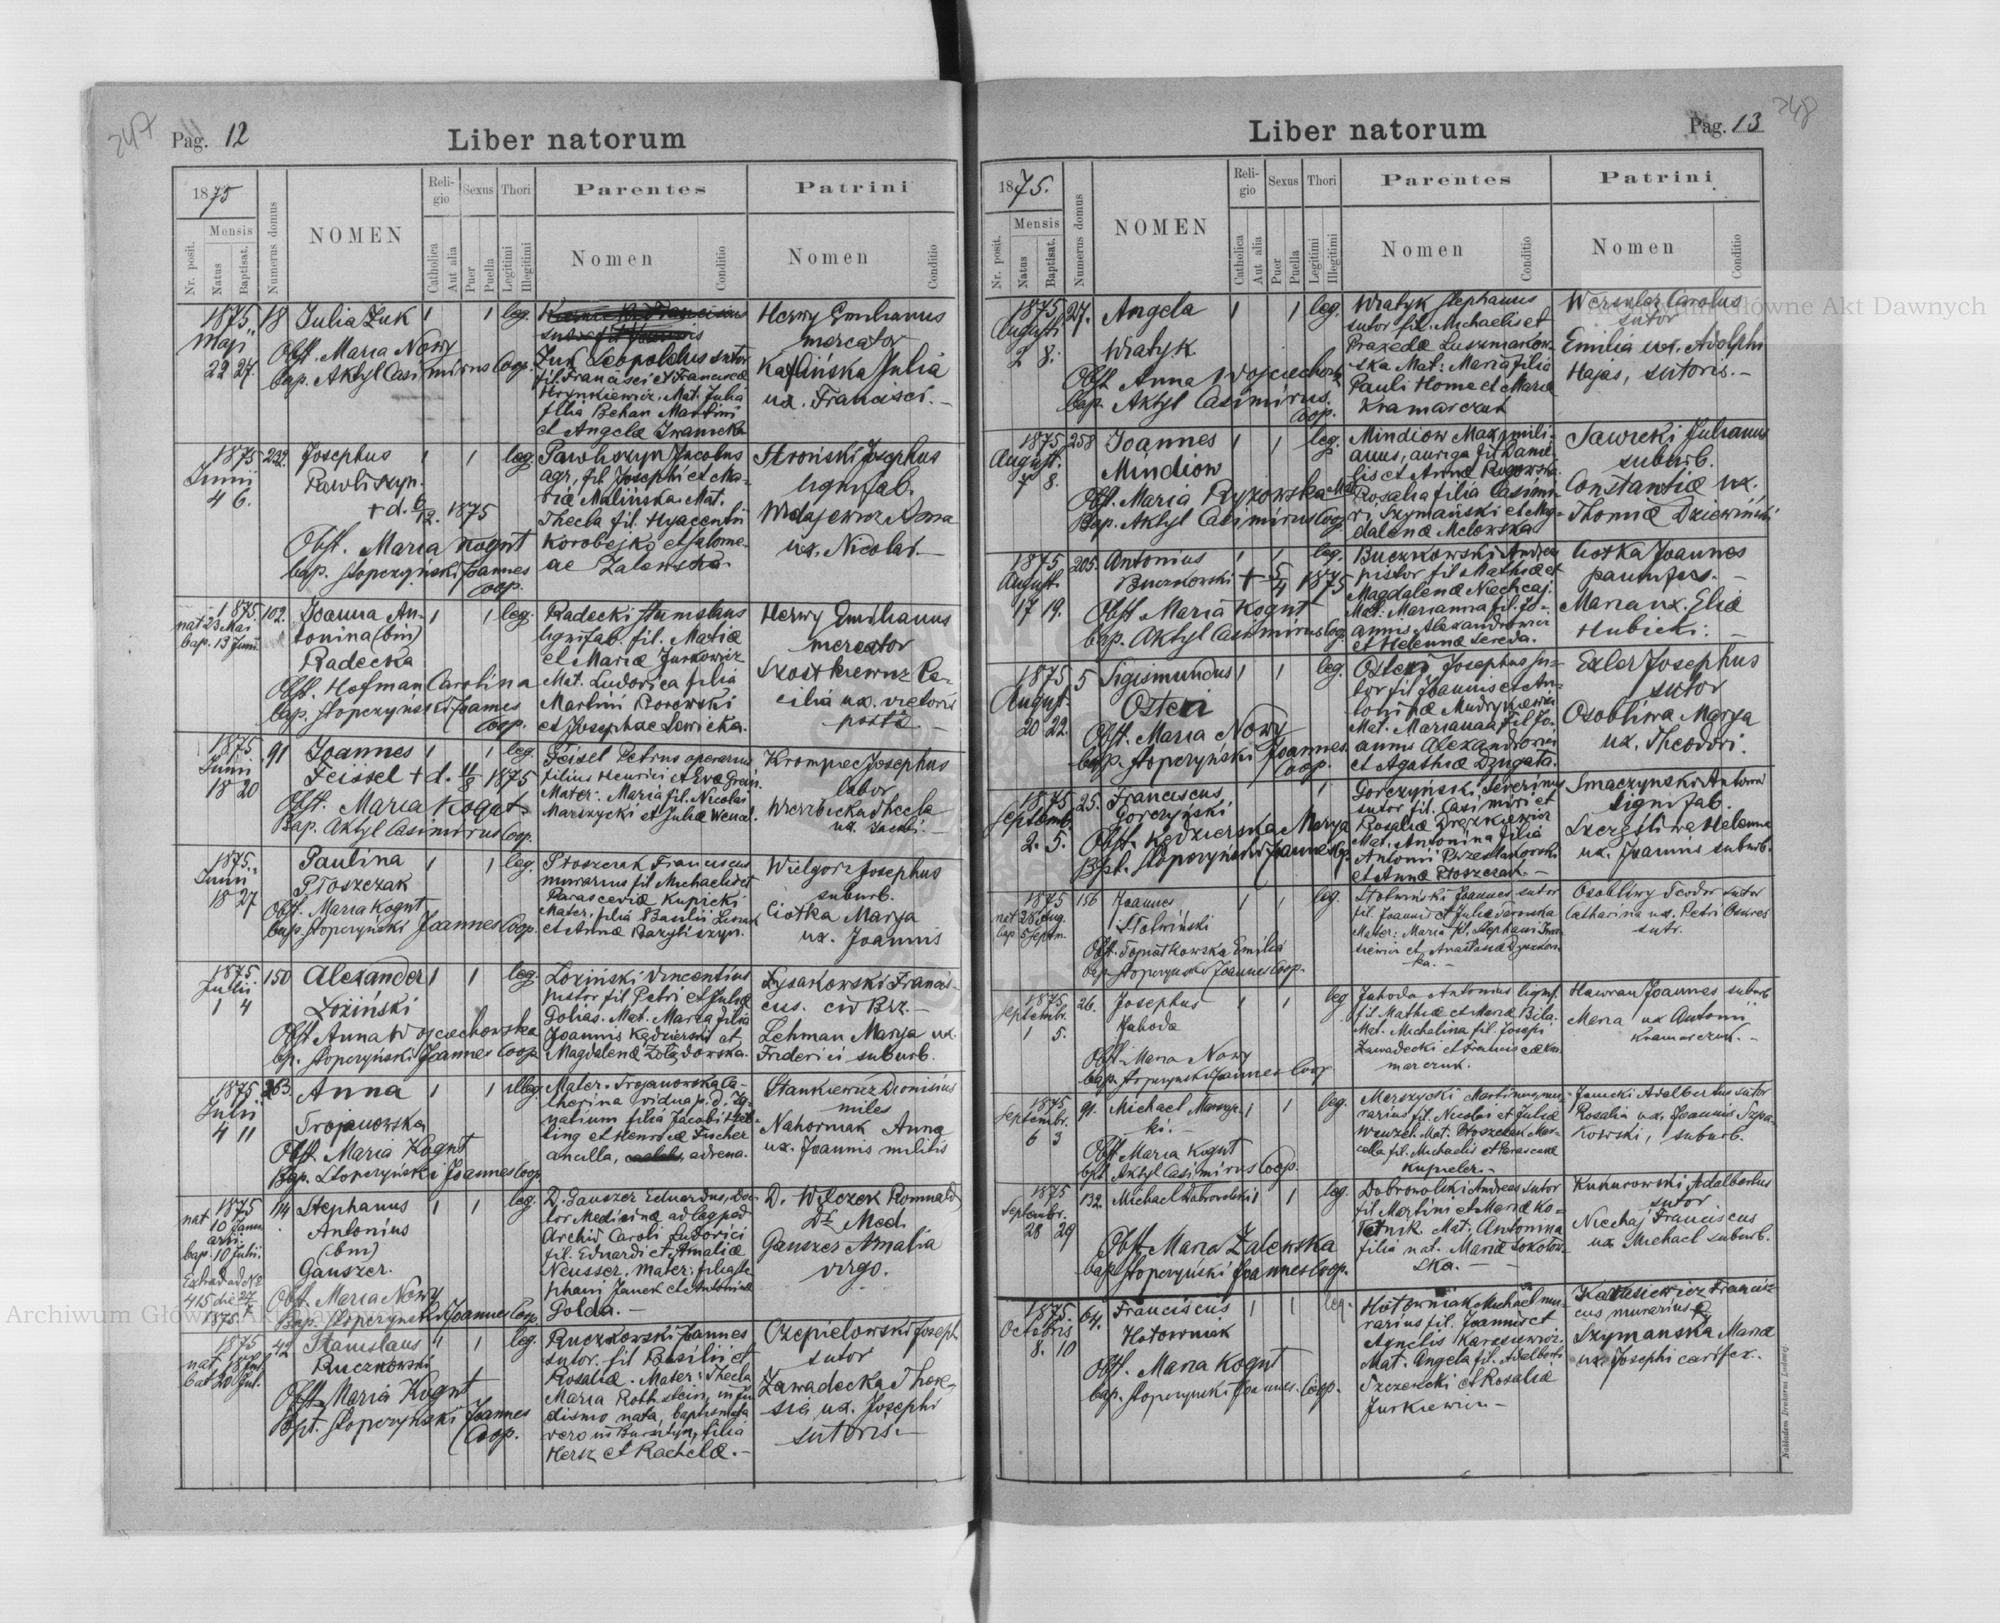 247
Pag. 12
Liber natorum
1875
Nr. posit.
Mensis
Natus
Baptisat.
Numerus domus
NOMEN
Religio
Catholica
Aut alia
Sexus
Puer
Puella
Thori
Legitimi
Illegitimi
Parentes
Nomen
Conditio
Patrini
Nomen
Conditio
1875
Maji
22 27.
18
Julia Żuk
Obst. Maria Nowy
bap. Aktyl Casimirus Coop.
1
1
leg.
Żuk Leopoldus sutor
fil. Francisci et Franciscae
Hrynkiewicz. Mat. Julia
filia Behan Martini
et Angelae Iwanicka
Herwy Emilianus
mercator
Kaflińska Julia
ux. Francisci. —
1875
Junii
4 6.
232.
Josephus
Pawliszyn.
+ d. 6/12. 1875
Obst. Maria Kogut
bap. Stoperzyński Joannes
Coop.
1
1
leg.
Pawliszyn Jacobus
agr. fil. Josephi et Ma-
riae Malińska. Mat.
Thecla fil. Hyacentii
Korobejko et Salome-
ae Zalewska.
Stroński Josephus
lignifab.
Anna
ux. Nicolai. —
1875.
nat. 23 Mai
bap. 13 Junii
102.
Joanna An-
tonina (bin)
Radecka
Obst. Hofman Carolina
bap. Stoperzynski Joannes
Coop.
1
1
leg.
Radecki Stanislaus
lignifab. fil. Mariae
et Mariae Jurkowicz
Mat. Ludovica filia
Martini Borowski
et Josephae Sawicka.
Herwy Emilianus
mercator
Szostkiewicz Ce-
cilia ux.
1875
Junii
18 20
91
Joannes
Feissel + d. 11/8 1875
Obst. Maria Kogut
Bap. Aktyl Casimirus Coop.
1
1
leg.
Feisel Petrus operarius
filius Henrici et Evae Grein.
Mater: Maria fil. Nicolai
Marszycki et Juliae Wencel.
Krompiec Josephus
labor.
Wierzbicka Thecla
ux. Jacobi. —
1875.
Junii
18 27
Paulina
Ptoszczak
Obst. Maria Kogut
bap. Stoperzynski Joannes Coop.
1
1
leg.
Ptoszczak Franciscus
murarius fil. Michaelis et
Parasceviae Kupicki
Mater: filia Basilii
et Annae Bazyliszyn.
Wielgosz Josephus
suburb.
Ciotka Marya
ux. Joannis
1875.
Julii
1 4
150
Alexander
Łoziński
Obst. Anna Wojciechowska
bp. Stoperzyński Joannes Coop
1
1
leg.
Łoziński Vincentius
pistor fil. Petri et Juliae
Golias. Mat. Maria filia
Joannis Kędzierski et
Magdalenae Żołądowska.
Łysakowski Francis-
cus. civ Brz. —
Lehman Marya ux.
Friderici suburb.
1875.
Julii
4 11
263.
Anna
Trojanowska
Obst. Maria Kogut
Bap. Stoperzyński Joannes Coop.
1
1
illeg.
Mater. Trojanowska Ca-
therina vidua p. d. Ig-
natium filia Jacobi
et Henricae Fischer
ancilla, advena.
Stankiewicz Dionisius
miles
Nahorniak Anna
ux. Joannis militis
1875
nat.
10 Janu-
arii.
bap. 10 Julii.
Extrad ad Nr
415 die 27/7
1875.
114
Stephanus
Antonius
(bin)
Gauszer.
Obst. Maria Nowy
Bap. Stoperzynski Joannes Coop.
1
1
leg.
D. Gauszer Eduardus, Doc-
tor Medicinae ad leg ped
Archid Caroli Ludovici
fil. Eduardi et Amaliae
Neusser. Mater: filia Ste-
phani Janek et Antoniae
Golda. —
D. Wilczek Romuald
Dr. Med.
Gauszer Amalia
virgo.
1875
nat. 18 Jul.
bat 20 Jul.
42
Stanislaus
Buczkowski
Obst. Maria Kogut
Bpt. Stoperzyński Joannes
Coop.
"
1
leg.
Buczkowski Joannes
sutor. fil Basilii et
Rosaliae. Mater: Thecla
Maria Rothstein, in Ju-
dismo nata, baptismata
vero in Bursztyn, filia
Hersz et Rachelae. —
Czepielowski Joseph.
sutor
Zawadecka There-
sia ux. Josephi
sutoris. —
248
Pag. 13
Liber natorum
1875.
Nr. posit.
Mensis
Natus
Baptisat.
Numerus domus
NOMEN
Religio
Catholica
Aut alia
Sexus
Puer
Puella
Thori
Legitimi
Illegitimi
Parentes
Nomen
Conditio
Patrini
Nomen
Conditio
1875
Augusti
2 8.
27.
Angela
Wratyk
Obst. Anna Wojciechowska
bap. Aktyl Casimirus.
Coop.
1
1
leg.
Wratyk Stephanus
sutor fil. Michaelis et
Praxedae Luszmarkow-
ska Mat: Maria filia
Pauli Homa et Mariae
Kramarczuk
Carolus
sutor
Emilia ux. Adolphi
Hajas, sutoris. —
1875
August.
7 8.
258
Joannes
Mindiow
Obst. Maria Ryzowska
Bap. Aktyl Casimirus Coop
1
1
leg.
Mindiow Maxymili-
anus, auriga fil Danie-
lis et Annae Rogowska.
Mat. Rosalia filia Casimi-
ri Szymański et Mag-
dalenae Melowska
Sawicki Julianus
suburb.
Constantia ux.
Thomae Dziewiński
1875
August.
17 19.
205.
Antonius
Buczkowski + 5/4 1875
Obst Maria Kogut
bap. Aktyl Casimirus Coop.
1
1
leg.
Buczkowski Andreas
pistor fil Mathiae et
Magdalenae Niechcaj.
Mat: Marianna fil. Jo-
annis Alexandrowicz
et Helenae Sereda.
Ciotka Joannes
panifex. —
Maria ux. Eliae
Hubicki. —
1875
August.
20 22.
5
Sigismundus
Osten
Obst. Maria Nowy
bap. Stoperzyński Joannes.
Coop.
1
1
leg.
Josephus su-
tor fil Joannis et An-
toninae Mudrykiewicz
Mat. Marianna fil Jo-
annis Alexandrowicz
et Agathae Dzugała.
Exler Josephus
sutor
Osobliwa Marya
ux. Theodori.
1875
Septemb.
2. 5.
25.
Franciscus
Gorczyński
Obst. Kędzierska Marya
Bpt. Stoperzyński Joannes Cp.
1
Gorczyński Severinus
sutor fil. Casimiri et
Rosaliae Drążkiewicz
Mat. Antonina filia
Antonii Przestakorski
et Annae Ptoszczak. —
Smaczynski Antonius
lignifab.
Szczęśliwa Helenna
ux. Joannis suburb.
1875
nat 28 Aug.
bap 5 Septm.
156
Joannes
Stotwiński
Obst. Topiatkowska Emilia
bap. Stoperzynski Joannes Coop.
1
1
leg.
Stotwiński Joannes sutor
fil. Joannis et Juliae Tarnowska
Mater: Maria fil. Stephani
et Anastasiae
Osobliwy Teodor sutor
Catharina ux. Petri
sutr.
1875.
Septembr.
1 5.
26.
Josephus
Jahoda
Obst. Maria Nowy
bap. Stoperzynski Joannes Coop
1
1
leg
Jahoda Antonius lignf.
fil Mathiae et Mariae Bila.
Mat. Michalina fil. Josephi
Zawadecki et Franciscae Kra-
marczuk.
Hawran Joannes suburb
Maria ux Antonii
Kramarczuk. —
1875
Septembr.
6 3
91.
Michael Marszyc-
ki. —
Obst Maria Kogut
bpt Aktyl Casimirus Coop.
1
1
leg.
Marszycki Martinus mu-
rarius fil. Nicolai et Juliae
Wenzel. Mat. Ptoszczak Mar-
cella fil. Michaelis et Parascevae
Kupieler. —
Janicki Adalbertus sutor
Rosalia ux. Joannis Szpa-
kowski, suburb.
1875
Septembr.
28 29
132.
Michael Dobrowolski
Obst. Maria Zalewska
bap Stoperzyński Joannes Coop.
1
leg.
Dobrowolski Andreas sutor
fil Martini et Mariae Ko-
Mat. Antonina
filia nat. Mariae Sokołow-
ska. —
Kukurowski Adalbertus
sutor
Niechaj Franciscus
ux Michael suburb.
1875.
Octobris
8. 10
64.
Franciscus
Hotowniak
Obst. Maria Kogut
bap. Stoperzynski Joannes. Coop.
1
1
leg.
Hotowniak Michael mu-
rarius fil. Joannis et
Agnetis Karasiewicz.
Mat. Angela fil. Adalberti
Szczerecki et Rosaliae
Jurkiewicz —
Karasiewicz Francis-
cus murarius
Szymanska Maria
ux. Josephi carifex.
Nakładem Drukarni Ludowej
Archiwum Główne Akt Dawnych
Archiwum Główne Akt Dawnych